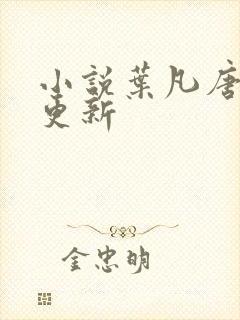 小説葉凡唐
更新
金忠明